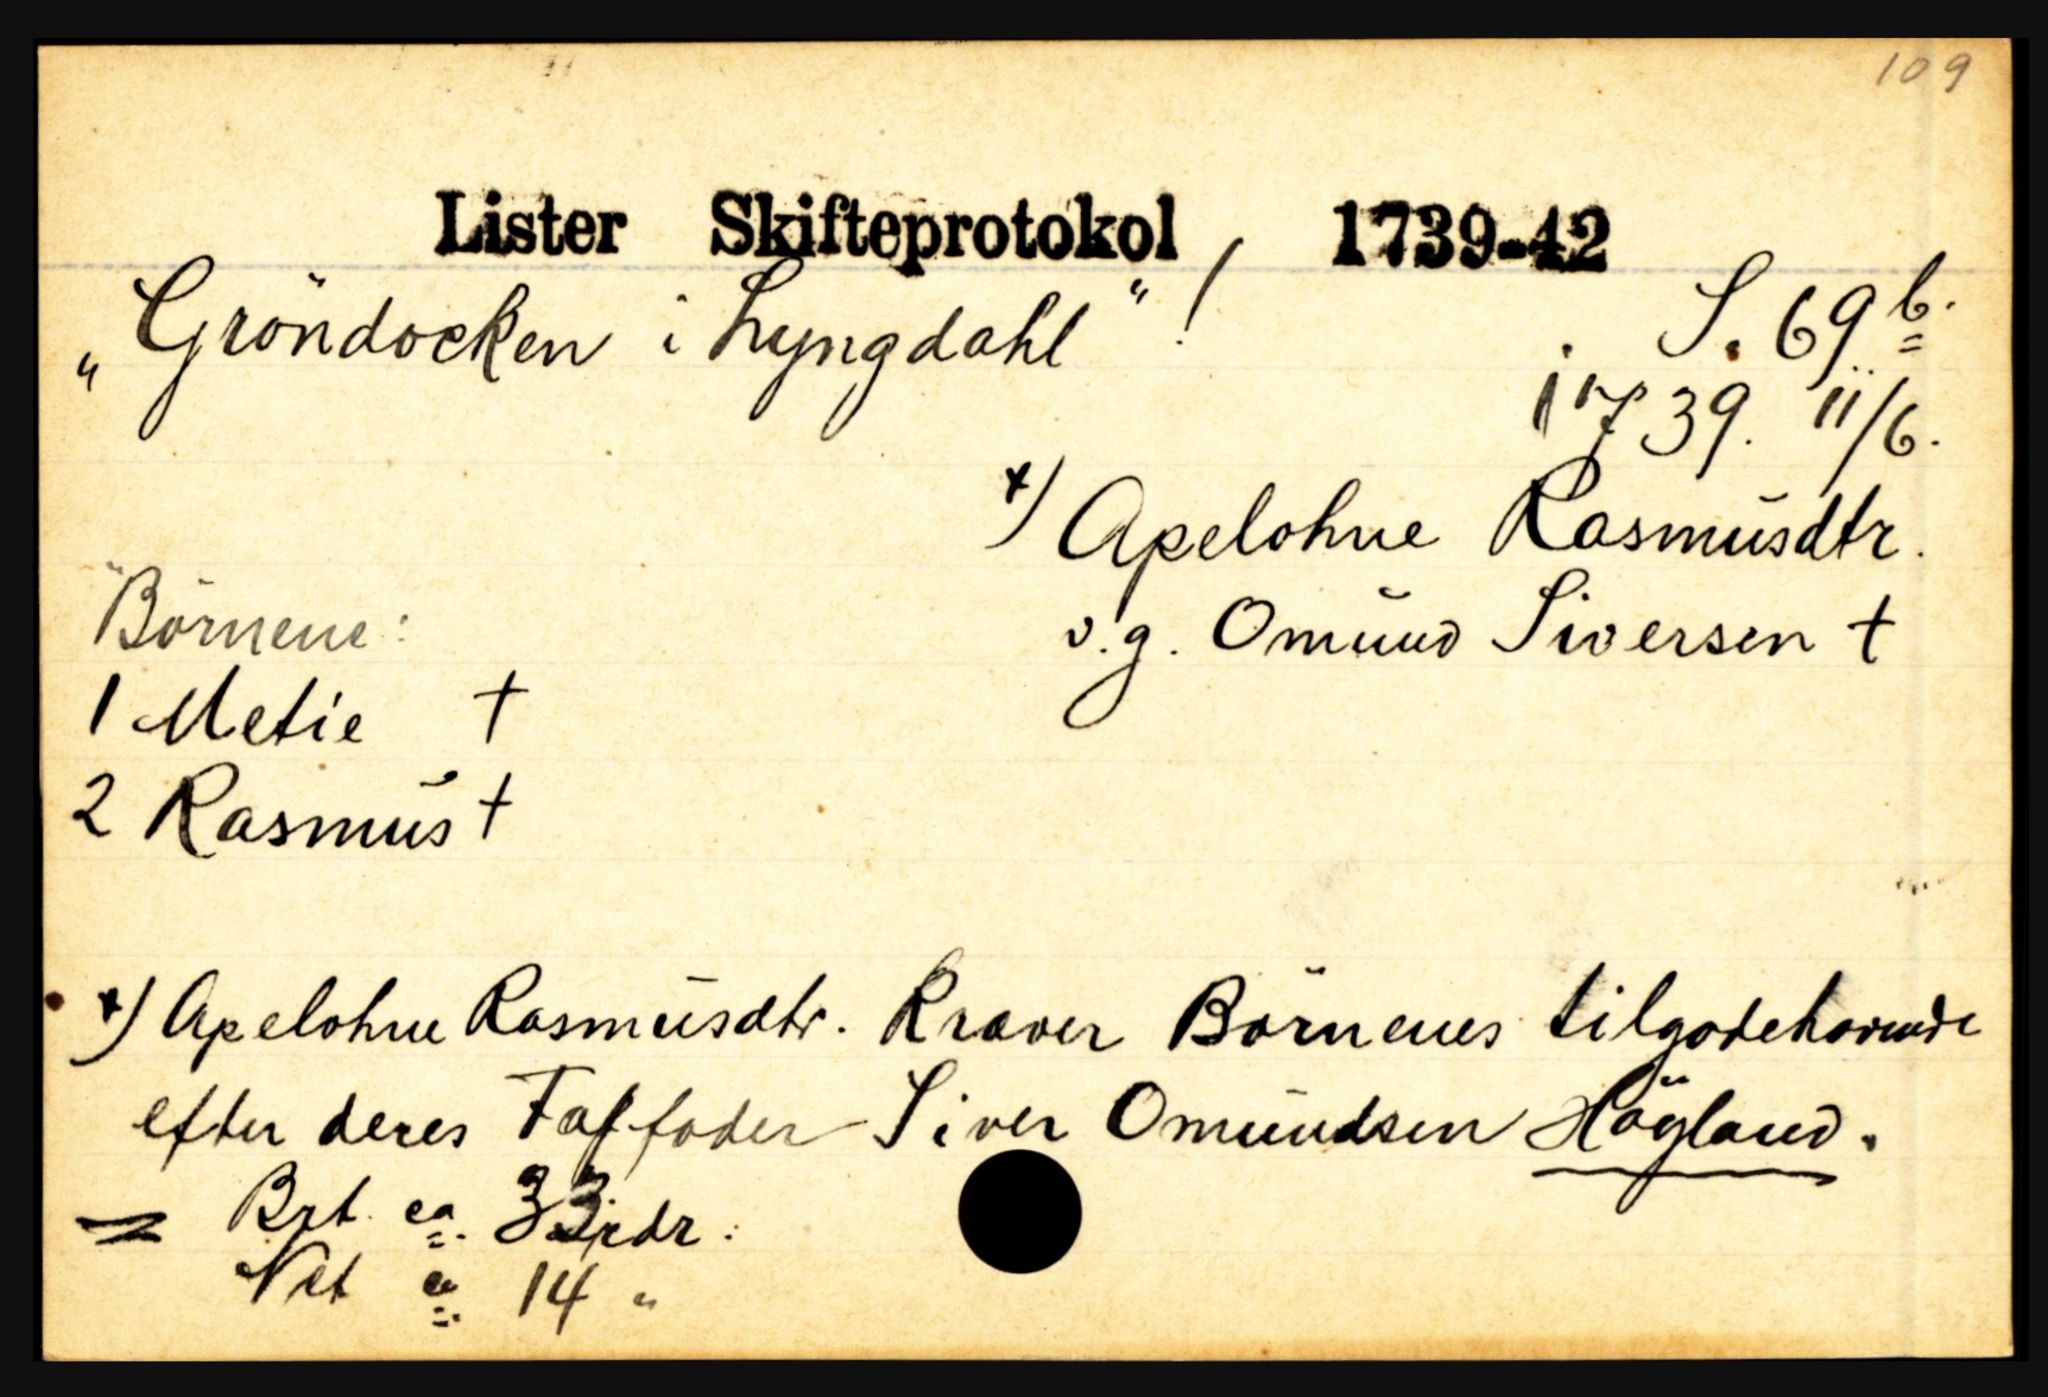 109
Lister Skifteprotokol 1739-42
„Gröndocken i Lyngdahl" !
S. 69 b.
1739. 11/6.
*) Apelohne Rasmusdtr.
v. g. Omund Siversen †
Börnene:
1 Metie †
2 Rasmus †
*) Apelohne Rasmusdtr. Kræver Börnenes tilgodehavende
efter deres Farfader Siver Omundsen Högland.
= Brt. ca. 33 rdr.
Net ca. 14 "